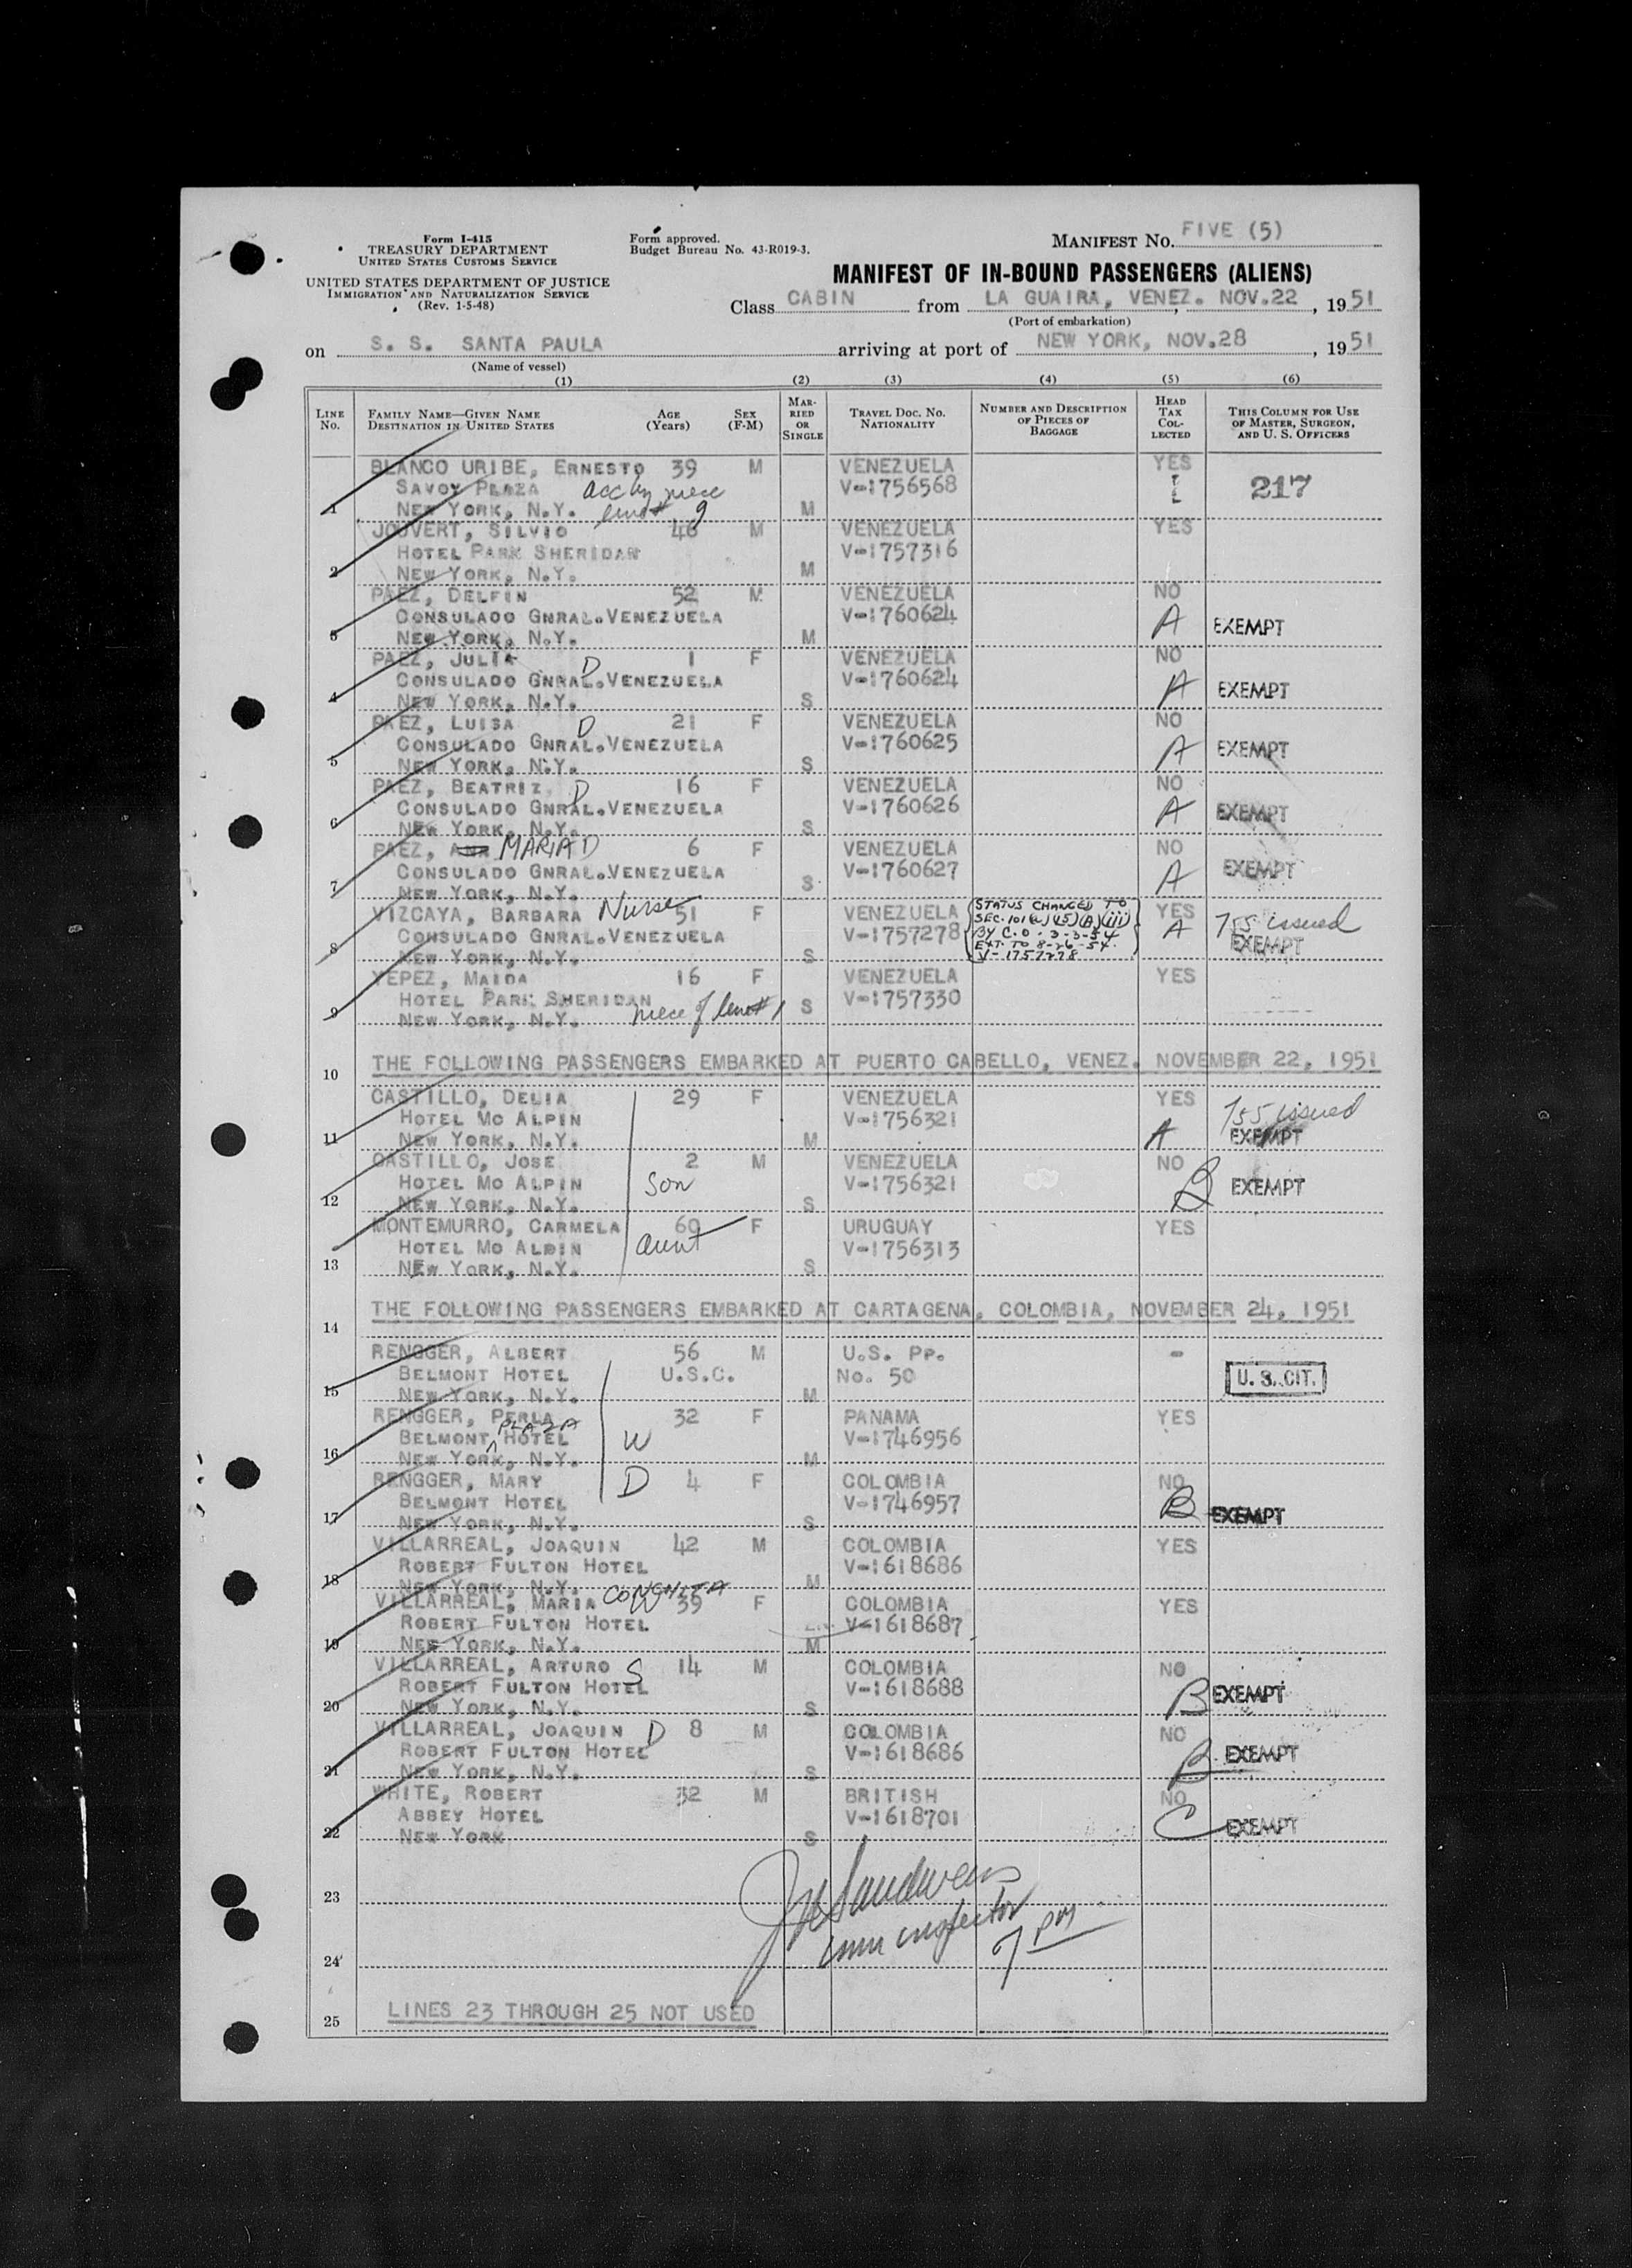 Form I-415
TREASURY DEPARTMENT
UNITED STATES CUSTOMS SERVICE
UNITED STATES DEPARTMENT OF JUSTICE
IMMIGRATION AND NATURALIZATION SERVICE
(Rev. 1-5-48)
Form approved.
Budget Bureau No. 43-R019-3.
MANIFEST No. FIVE (5)
MANIFEST OF IN-BOUND PASSENGERS (ALIENS)
Class CABIN from LA GUAIRA, VENEZ. NOV.22, 1951
(Port of embarkation)
on S. S. SANTA PAULA arriving at port of NEW YORK, NOV.28, 1951
(Name of vessel)
(1) (2) (3) (4) (5) (6)
LINE No. FAMILY NAME—GIVEN NAME DESTINATION IN UNITED STATES AGE (Years) SEX (F-M) MARRIED OR SINGLE TRAVEL DOC. No. NATIONALITY NUMBER AND DESCRIPTION OF PIECES OF BAGGAGE HEAD TAX COLLECTED THIS COLUMN FOR USE OF MASTER, SURGEON, AND U. S. OFFICERS
BLANCO URIBE, ERNESTO 39 M VENEZUELA YES
SAVOY PLAZA acc by niece V-1756568 217
1 NEW YORK, N.Y. line# 9 M
JOUVERT, SILVIO 46 M VENEZUELA YES
HOTEL PARK SHERIDAN V-1757316
2 NEW YORK, N.Y. M
PAEZ, DELFIN 52 M VENEZUELA NO
CONSULADO GNRAL.VENEZUELA V-1760624 A EXEMPT
3 NEW YORK, N.Y. M
PAEZ, JULIA D 1 F VENEZUELA NO
CONSULADO GNRAL.VENEZUELA V-1760624 A EXEMPT
4 NEW YORK, N.Y. S
PAEZ, LUISA D 21 F VENEZUELA NO
CONSULADO GNRAL.VENEZUELA V-1760625 A EXEMPT
5 NEW YORK, N.Y. S
PAEZ, BEATRIZ D 16 F VENEZUELA NO
CONSULADO GNRAL.VENEZUELA V-1760626 A EXEMPT
6 NEW YORK, N.Y. S
PAEZ, MARIA D 6 F VENEZUELA NO
CONSULADO GNRAL.VENEZUELA V-1760627 A EXEMPT
7 NEW YORK, N.Y. S
VIZCAYA, BARBARA Nurse 51 F VENEZUELA YES
CONSULADO GNRAL.VENEZUELA V-1757278 A 755 issued EXEMPT
8 NEW YORK, N.Y. S
STATUS CHANGED TO
SEC. 101(a)(15)(A)(iii)
BY C.O. 3-3-54
EXT. TO 8-26-54.
V-1757278
YEPEZ, MAIDA 16 F VENEZUELA YES
HOTEL PARK SHERIDAN V-1757330
9 NEW YORK, N.Y. niece of line# 1 S
10 THE FOLLOWING PASSENGERS EMBARKED AT PUERTO CABELLO, VENEZ. NOVEMBER 22, 1951
CASTILLO, DELIA 29 F VENEZUELA YES
HOTEL MC ALPIN V-1756321 755 issued
11 NEW YORK, N.Y. M A EXEMPT
CASTILLO, JOSE 2 M VENEZUELA NO
HOTEL MC ALPIN Son V-1756321 B EXEMPT
12 NEW YORK, N.Y. S
MONTEMURRO, CARMELA 60 F URUGUAY YES
HOTEL MC ALPIN aunt V-1756313
13 NEW YORK, N.Y. S
14 THE FOLLOWING PASSENGERS EMBARKED AT CARTAGENA, COLOMBIA, NOVEMBER 24, 1951
RENGGER, ALBERT 56 M U.S. PP. -
BELMONT HOTEL U.S.C. No. 50 U. S. CIT.
15 NEW YORK, N.Y. M
RENGGER, PERLA 32 F PANAMA YES
BELMONT PLAZA HOTEL W V-1746956
16 NEW YORK, N.Y. M
RENGGER, MARY D 4 F COLOMBIA NO
BELMONT HOTEL V-1746957 B EXEMPT
17 NEW YORK, N.Y. S
VILLARREAL, JOAQUIN 42 M COLOMBIA YES
ROBERT FULTON HOTEL V-1618686
18 NEW YORK, N.Y. M
VILLARREAL, MARIA CONCHITA W 39 F COLOMBIA YES
ROBERT FULTON HOTEL V-1618687
19 NEW YORK, N.Y. M
VILLARREAL, ARTURO S 14 M COLOMBIA NO
ROBERT FULTON HOTEL V-1618688 B EXEMPT
20 NEW YORK, N.Y. S
VILLARREAL, JOAQUIN D 8 M COLOMBIA NO
ROBERT FULTON HOTEL V-1618686 B EXEMPT
21 NEW YORK, N.Y. S
WHITE, ROBERT 32 M BRITISH NO
ABBEY HOTEL V-1618701 C EXEMPT
22 NEW YORK S
23
imm inspector
7 PM
24
25 LINES 23 THROUGH 25 NOT USED